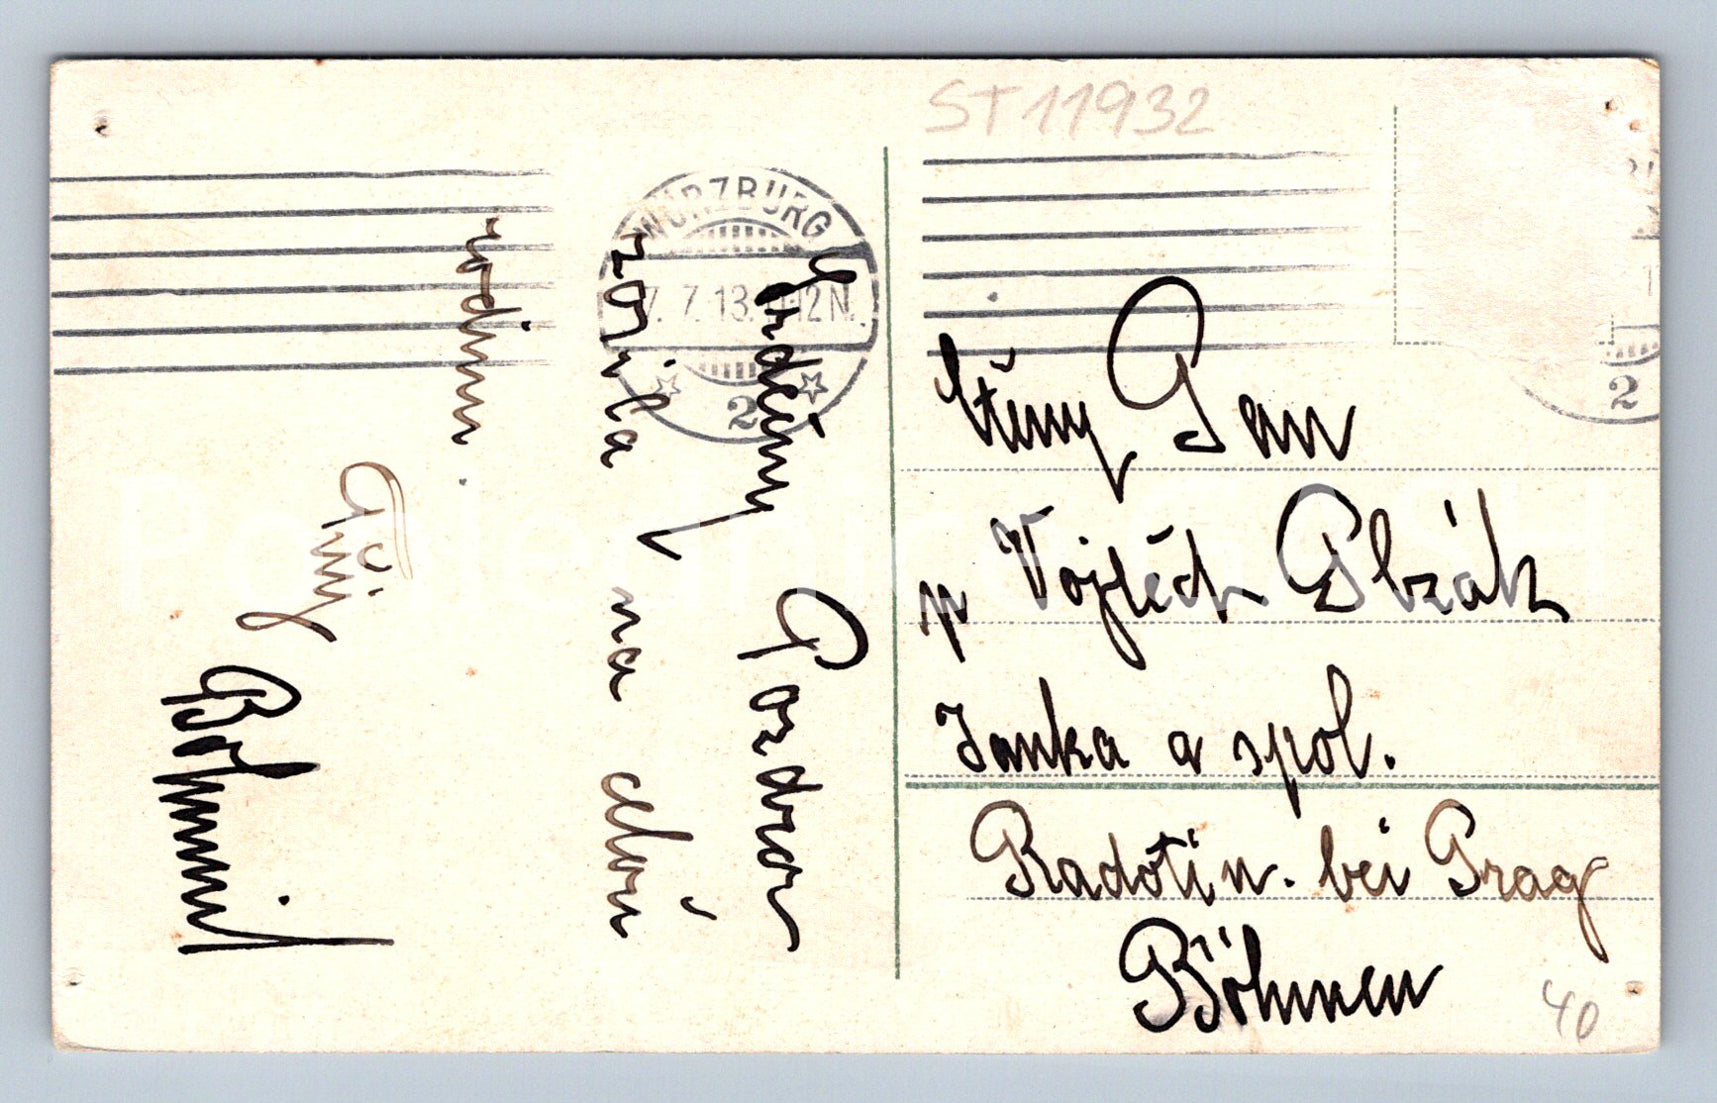 ST11932
WÜRZBURG
7. 7. 13. 12 N.
2
2
Srdečný Pozdrav
na celou
rodinu.
Tvůj
Ctěný Pan
p Vojtěch Plzák
Janka a spol.
Radotín. bei Prag
Böhmen
40